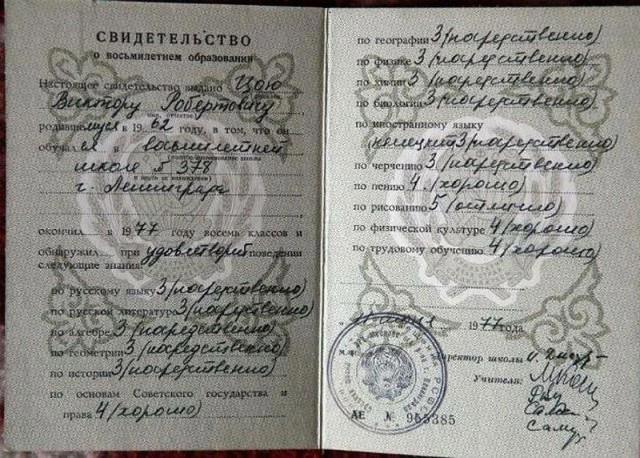 СВИДЕТЕЛЬСТВО
о восьмилетнем образовании
Настоящее свидетельство выдано Цою
Виктору Робертовичу
имя, отчество
родившемуся в 1962 году, в том, что он
обучался в восьмилетней
школе № 378
г. Ленинграда
окончил в 1977 году восемь классов и
обнаружил при удовлетворит поведении
следующие знания:
по русскому языку 3 (посредственно)
по русской литературе 3 (посредственно)
по алгебре 3 (посредственно)
по геометрии 3 (посредственно)
по истории 3 (посредственно)
по основам Советского государства и
права 4 (хорошо)
по географии 3 (посредственно)
по физике 3 (посредственно)
по химии 3 (посредственно)
по биологии 3 (посредственно)
по иностранному языку
(немецкий) 3 (посредственно)
по черчению 3 (посредственно)
по пению 4 (хорошо)
по рисованию 5 (отлично)
по физической культуре 4 (хорошо)
по трудовому обучению 4 (хорошо)
1977 года
Директор школы
Учителя:
АЕ № 955385